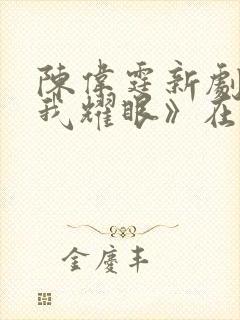 陳偉霆新劇
我耀眼》在
金慶丰